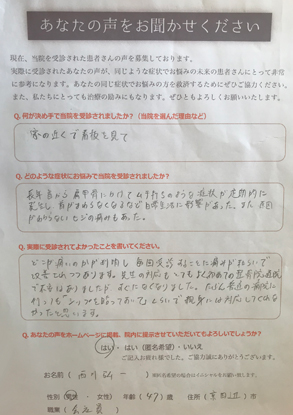 あなたの声をお聞かせください
現在、当院を受診された患者さんの声を募集しております。
実際に受診されたあなたの声が、同じような症状でお悩みの未来の患者さんにとって非常
に参考になります。あなたの同じ症状でお悩みの方を救済するためにぜひご協力ください。
また、私たちにとっても治療の励みにもなります。ぜひともよろしくお願いいたします。
Q. 何が決め手で当院を受診されましたか？（当院を選んだ理由など）
家の近くで看板を見て
Q. どのような症状にお悩みで当院を受診されましたか？
長年首から肩甲骨にかけてムチ打ちのような症状が定期的に
首がまわらなくなるなど日常生活に影響があった。また
ヒジの痛みもあった。
Q. 実際に受診されてよかったことを書いてください。
どこが痛いのかが判明し毎回受診するごとに痛みがやわらいで
改善されつつあります。先生の対応も
むになくなりました。
行っても"シップを貼っておいて"ぐらいで親身には対応してくれな
かったと思います。
Q. あなたの声をホームページに掲載、院内に展示させていただいてもよろしいでしょうか？
はい ・ はい（匿名希望）・ いいえ
ご記入お疲れ様でした、ご協力誠にありがとうございます。
お名前（ 西川 ）
性別（ 男性 ・ 女性） 年齢（47）歳 住所（ 市
職業（会社員 ）